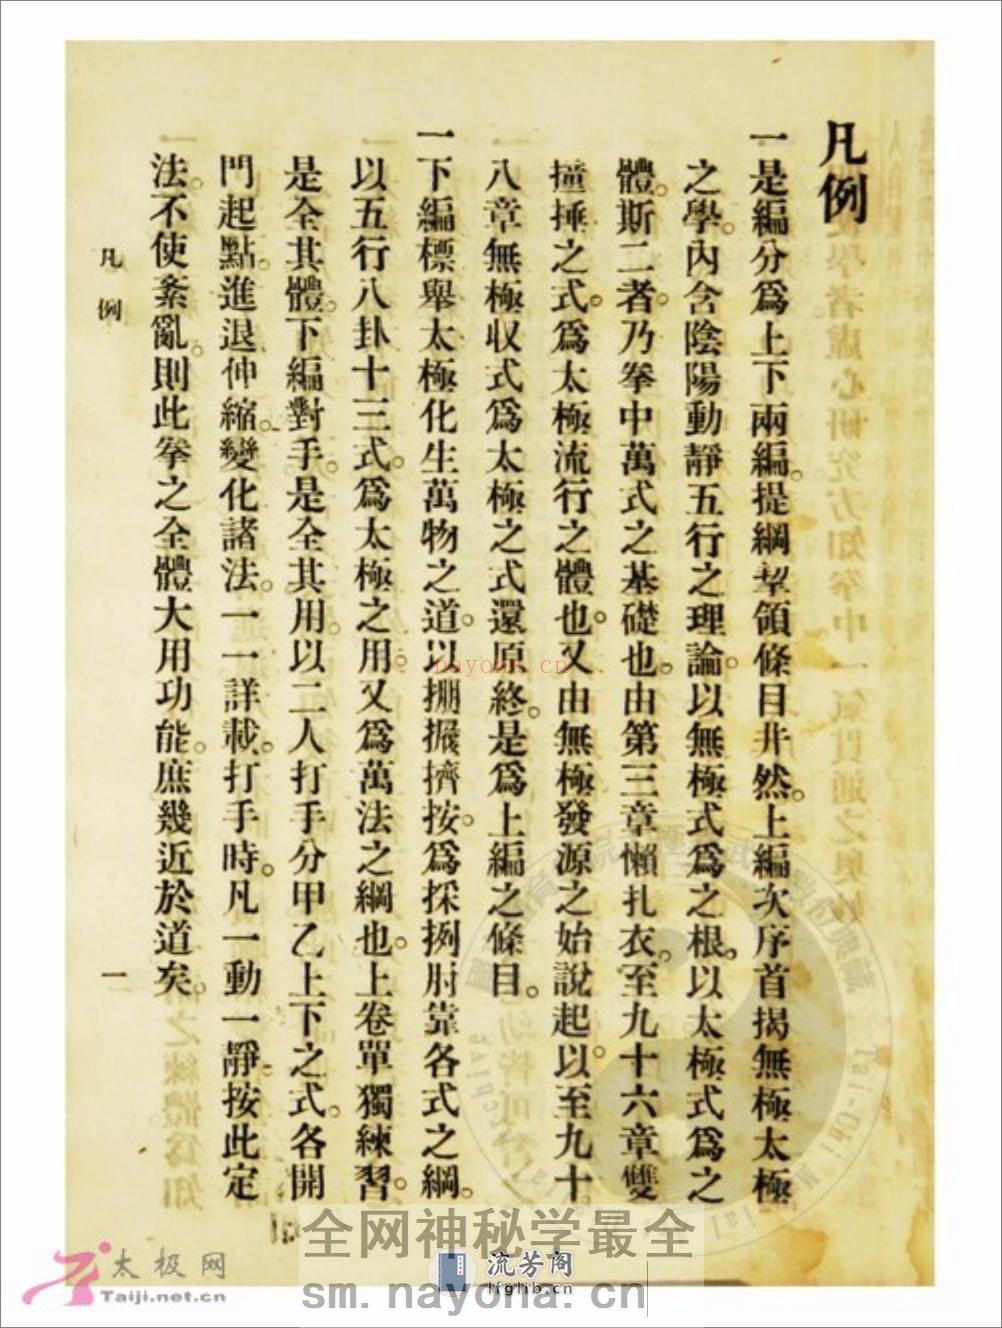 凡例
一是編分爲上下兩編。提綱挈領條目井然。上編次序首揭無極太極
之學。內含陰陽動靜五行之理論。以無極式爲之根。以太極式爲之
體。斯二者。乃拳中萬式之基礎也。由第三章懶扎衣。至九十六章雙
撞捶之式。爲太極流行之體也。又由無極發源之始說起。以至九十
八章無極收式爲太極之式還原終。是爲上編之條目。
一下編標舉太極化生萬物之道。以掤攦擠按。爲採挒肘靠各式之綱。
以五行八卦十三式。爲太極之用。又爲萬法之綱也。上卷單獨練習。
是全其體。下編對手。是全其用。以二人打手分甲乙上下之式。各開
門起點。進退伸縮。變化諸法。一一詳載。打手時。凡一動一靜。按此定
法。不使紊亂。則此拳之全體大用功能。庶幾近於道矣。
凡例
一
nayona.cn
全网神秘学最全
sm.nayona.cn
流芳阁
lfglib.cn
太极网
Taiji.net.cn